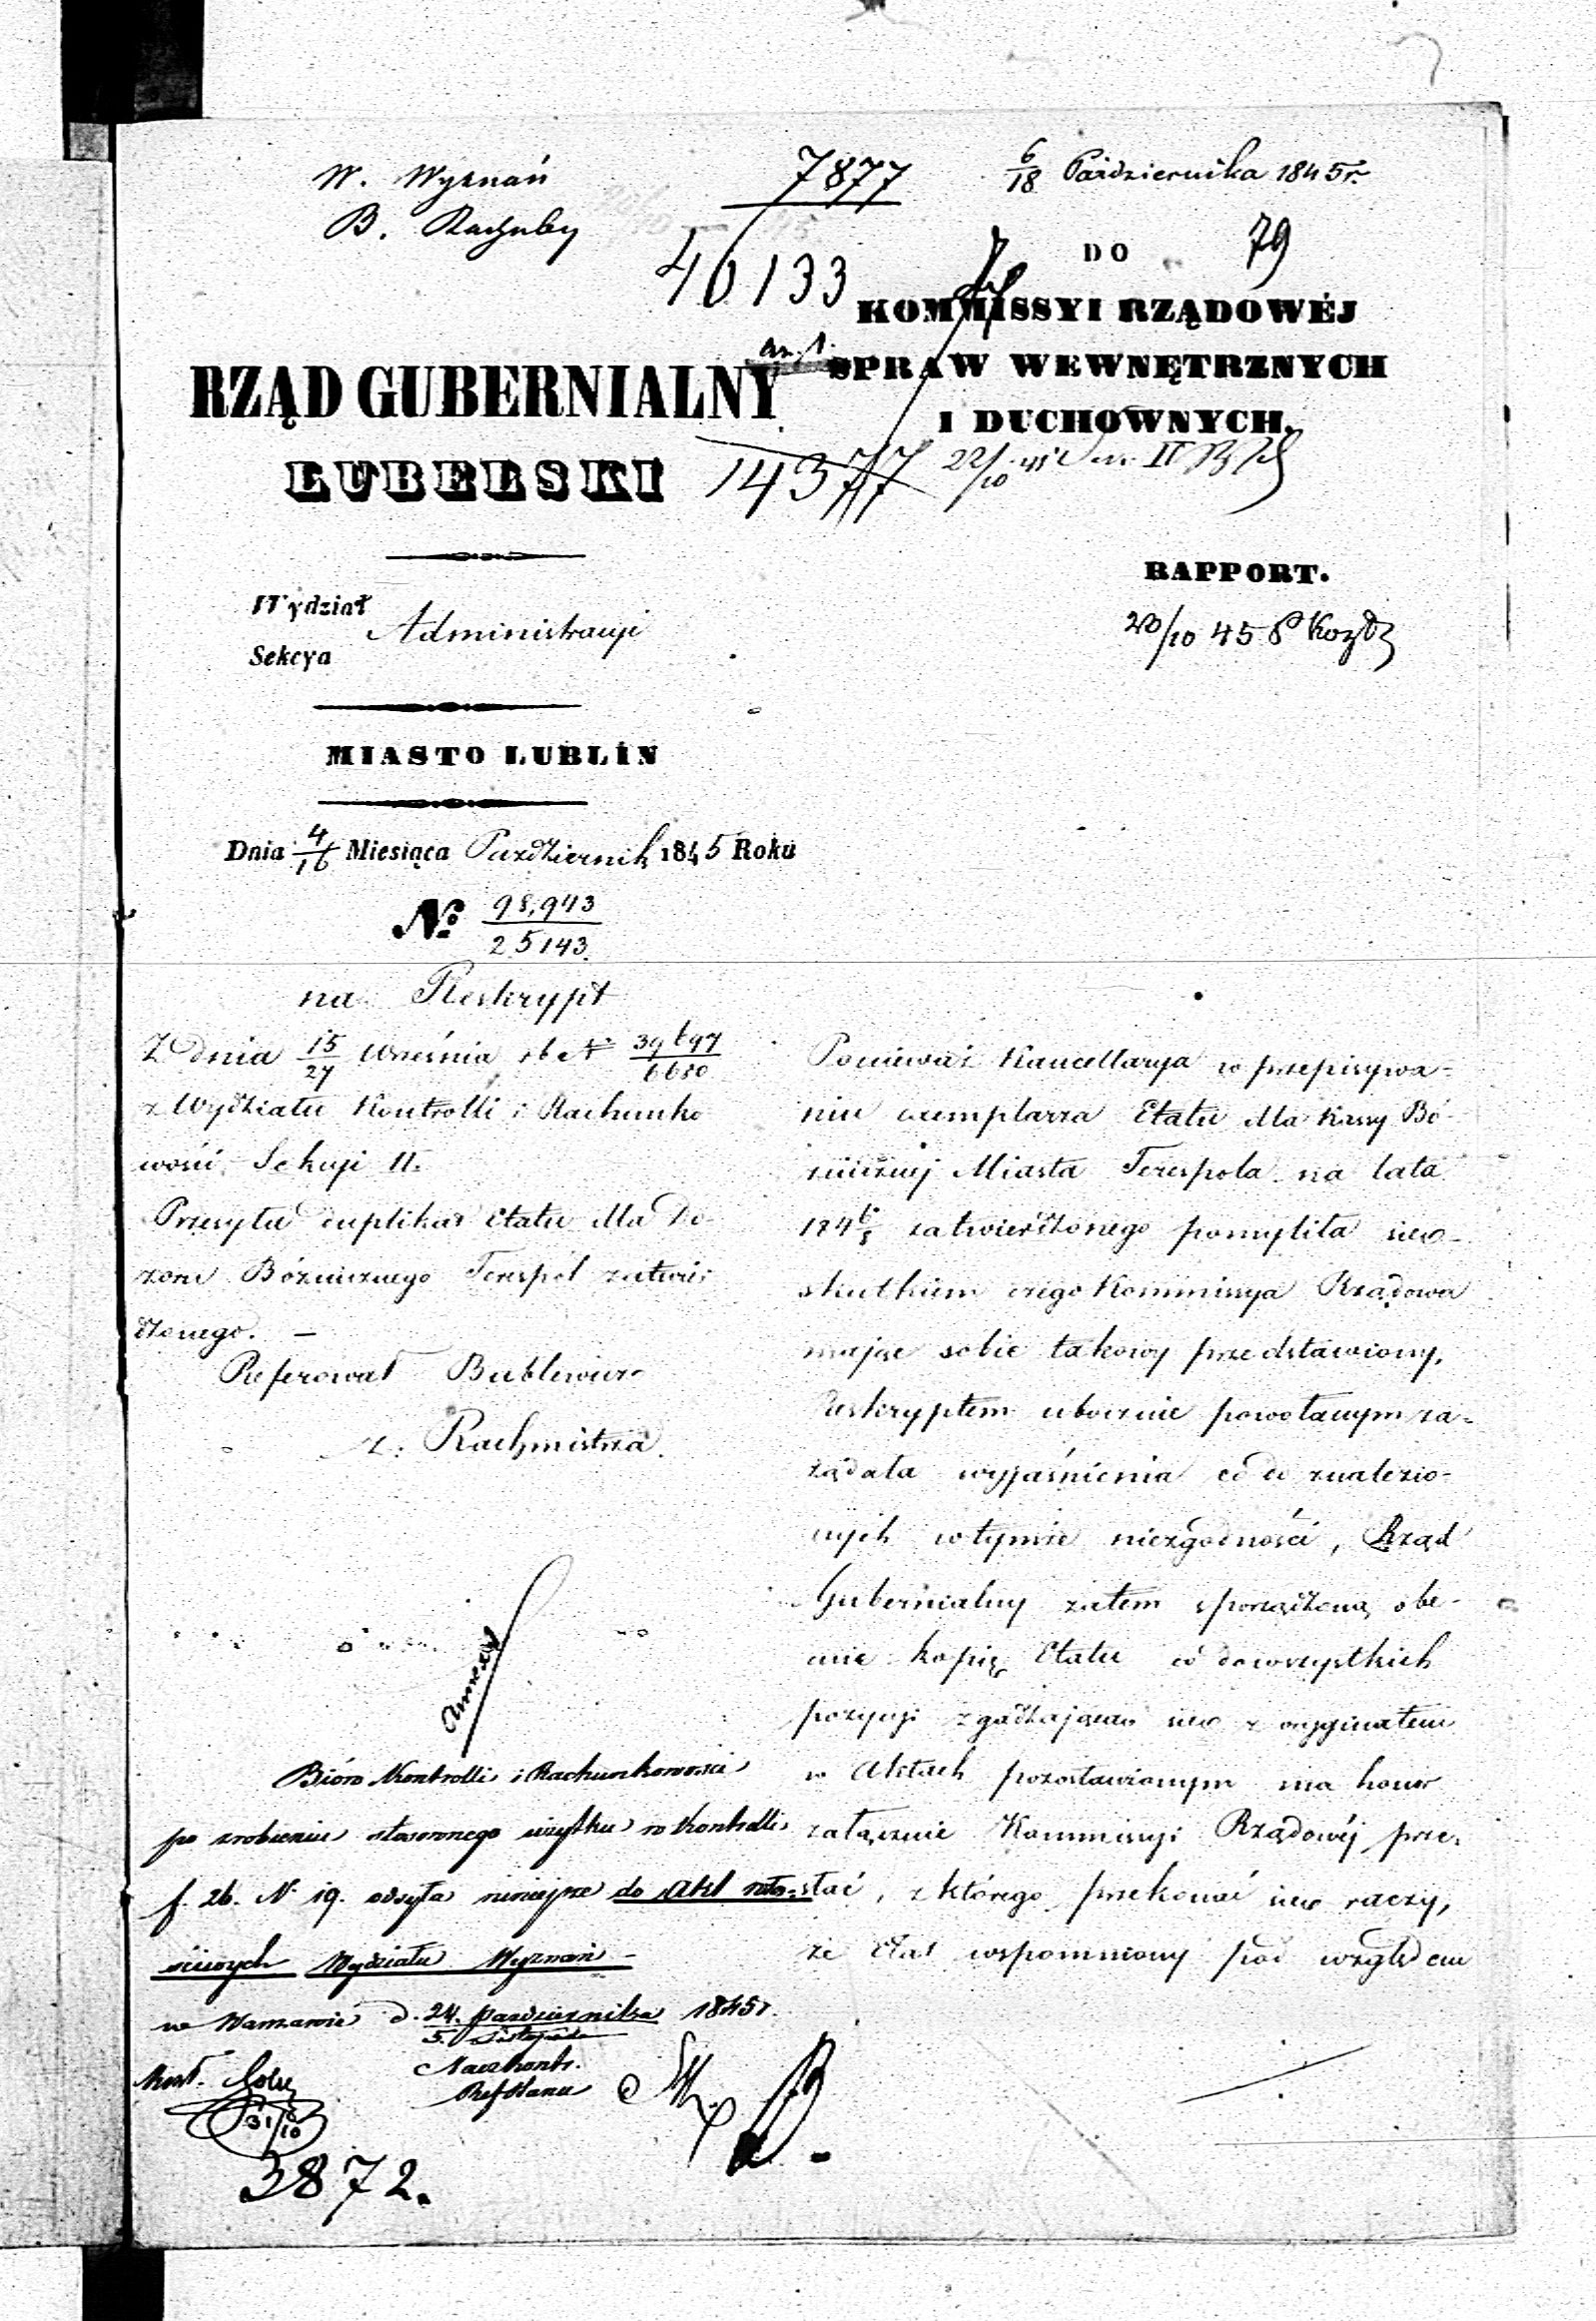 W. Wyznań
B. Rachuby
7877
6/18 Października 1845 r.
46133
DO
79
KOMMISSYI RZĄDOWÉJ
SPRAW WEWNĘTRZNYCH
I DUCHOWNYCH.
RZĄD GUBERNIALNY
LUBELSKI
14377
22/10
RAPPORT.
20/10 45
Wydział
Administracyi
Sekcya
MIASTO LUBLIN
Dnia 4/16 Miesiąca Październik 1845 Roku
No 98,943
25143.
na Reskrypt
Z dnia 15/27 Września rb No 39697/6680
z Wydziału Kontrolli i Rachunko
wości, Sekcyi II.
Przesyła duplikat Etatu dla Do-
zoru Bóżniczego Terespol zatwier
dzonego. —
Referował Bublewicz
z: Rachmistrza
Ponieważ Kancellarya w przepisywa-
niu exemplarza Etatu dla Kassy Bó-
żniczney Miasta Terespola na lata
184 6/8 zatwierdzonego pomyliła się
skutkiem czego Kommissya Rządowa
mając sobie takowy przedstawiony,
Reskryptem ubocznie powołanym za-
żądała wyjaśnienia co do znalezio-
nych w tymże niezgodności, Rząd
Gubernialny zatem sporządzoną obe-
cnie kopię Etatu co do wszystkich
pozycyi zgadzającą się z oryginałem
w Aktach pozostawionym ma honor
załącznie Kommissyi Rządowéj prze-
słać, z którego przekonać się raczy,
że Etat wspomniony pod względem
Annexa
Bióro Kontrolli i Rachunkowości
po zrobieniu stosownego użytku w Kontrolli
f. 26. N 19. odsyła niniejsze do Akt wła-
ściwych Wydziału Wyznań –
w Warszawie d. 24. Października 1845 r.
5. Listopada
Naczkontr.
31/10
3872.